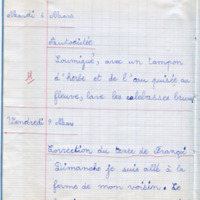 Mardi 6 Mars
Autodictée
Soumiqué, avec un tampon
d'herbe et de l'eau puisée au
fleuve, lave les calebasses brunes
Vendredi 9 Mars
Correction du texte de Français
Dimanche je suis allé à la
ferme de mon voisin. Le